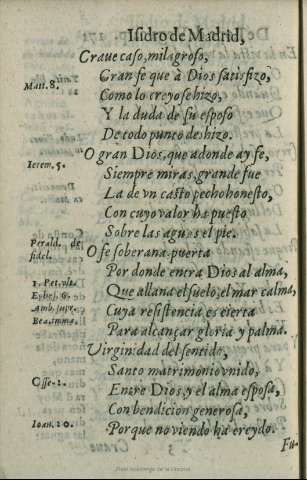 Isidro de Madrid,
Graue caso, milagroso,
Gran fe que à Dios satisfizo,
Matt. 8.
Como lo creyo se hizo,
Y la duda de su esposo
De todo punto deshizo.
O gran Dios, que adonde ay fe,
Ierem. 5.
Siempre miras, grande fue
La de vn casto pecho honesto,
Con cuyo valor ha puesto
Sobre las aguas el pie.
Perald. de
fidel.
O fe soberana puerta
Por donde entra Dios al alma,
1. Pet. vlt.
Que allana el suelo, el mar calma,
Ephes. 6.
Amb. supr.
Cuya resistencia es cierta
Bea. imma.
Para alcançar gloria y palma.
Virginidad del sentido,
Santo matrimonio vnido,
Osse. 2.
Entre Dios, y el alma esposa,
Con bendicion generosa,
Ioan. 20.
Porque no viendo ha creydo.
Fu-